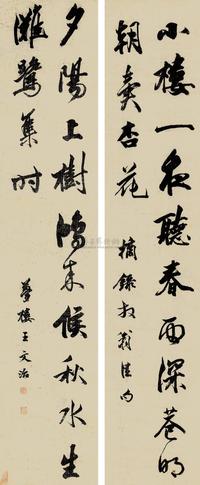 小樓一夜聽春雨深巷明
朝賣杏花
摘錄放翁佳句
夕陽上樹鴻來候秋水生
灘鷺集時
夢樓王文治